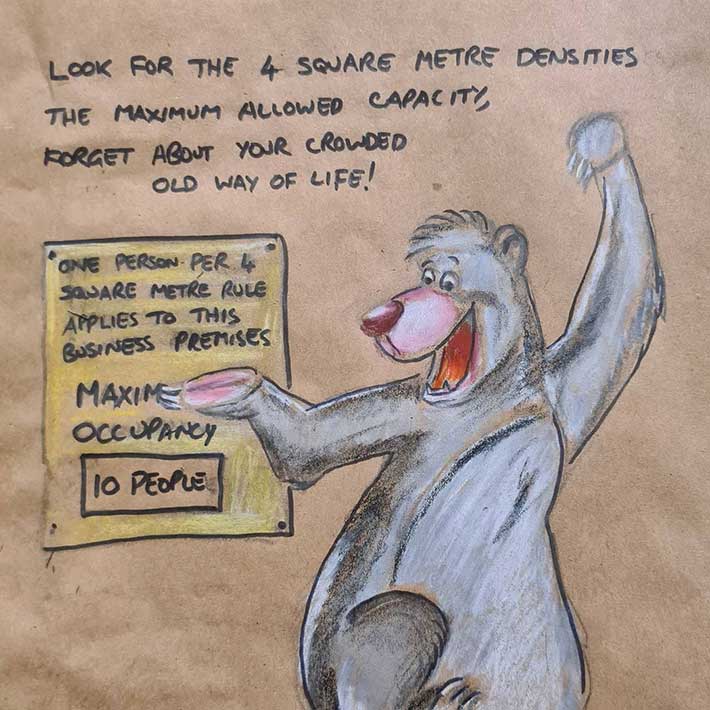 LOOK FOR THE 4 SQUARE METRE DENSITIES
THE MAXIMUM ALLOWED CAPACITY,
FORGET ABOUT YOUR CROWDED
OLD WAY OF LIFE!
ONE PERSON PER 4
SQUARE METRE RULE
APPLIES TO THIS
BUSINESS PREMISES
MAXIM
OCCUPANCY
10 PEOPLE